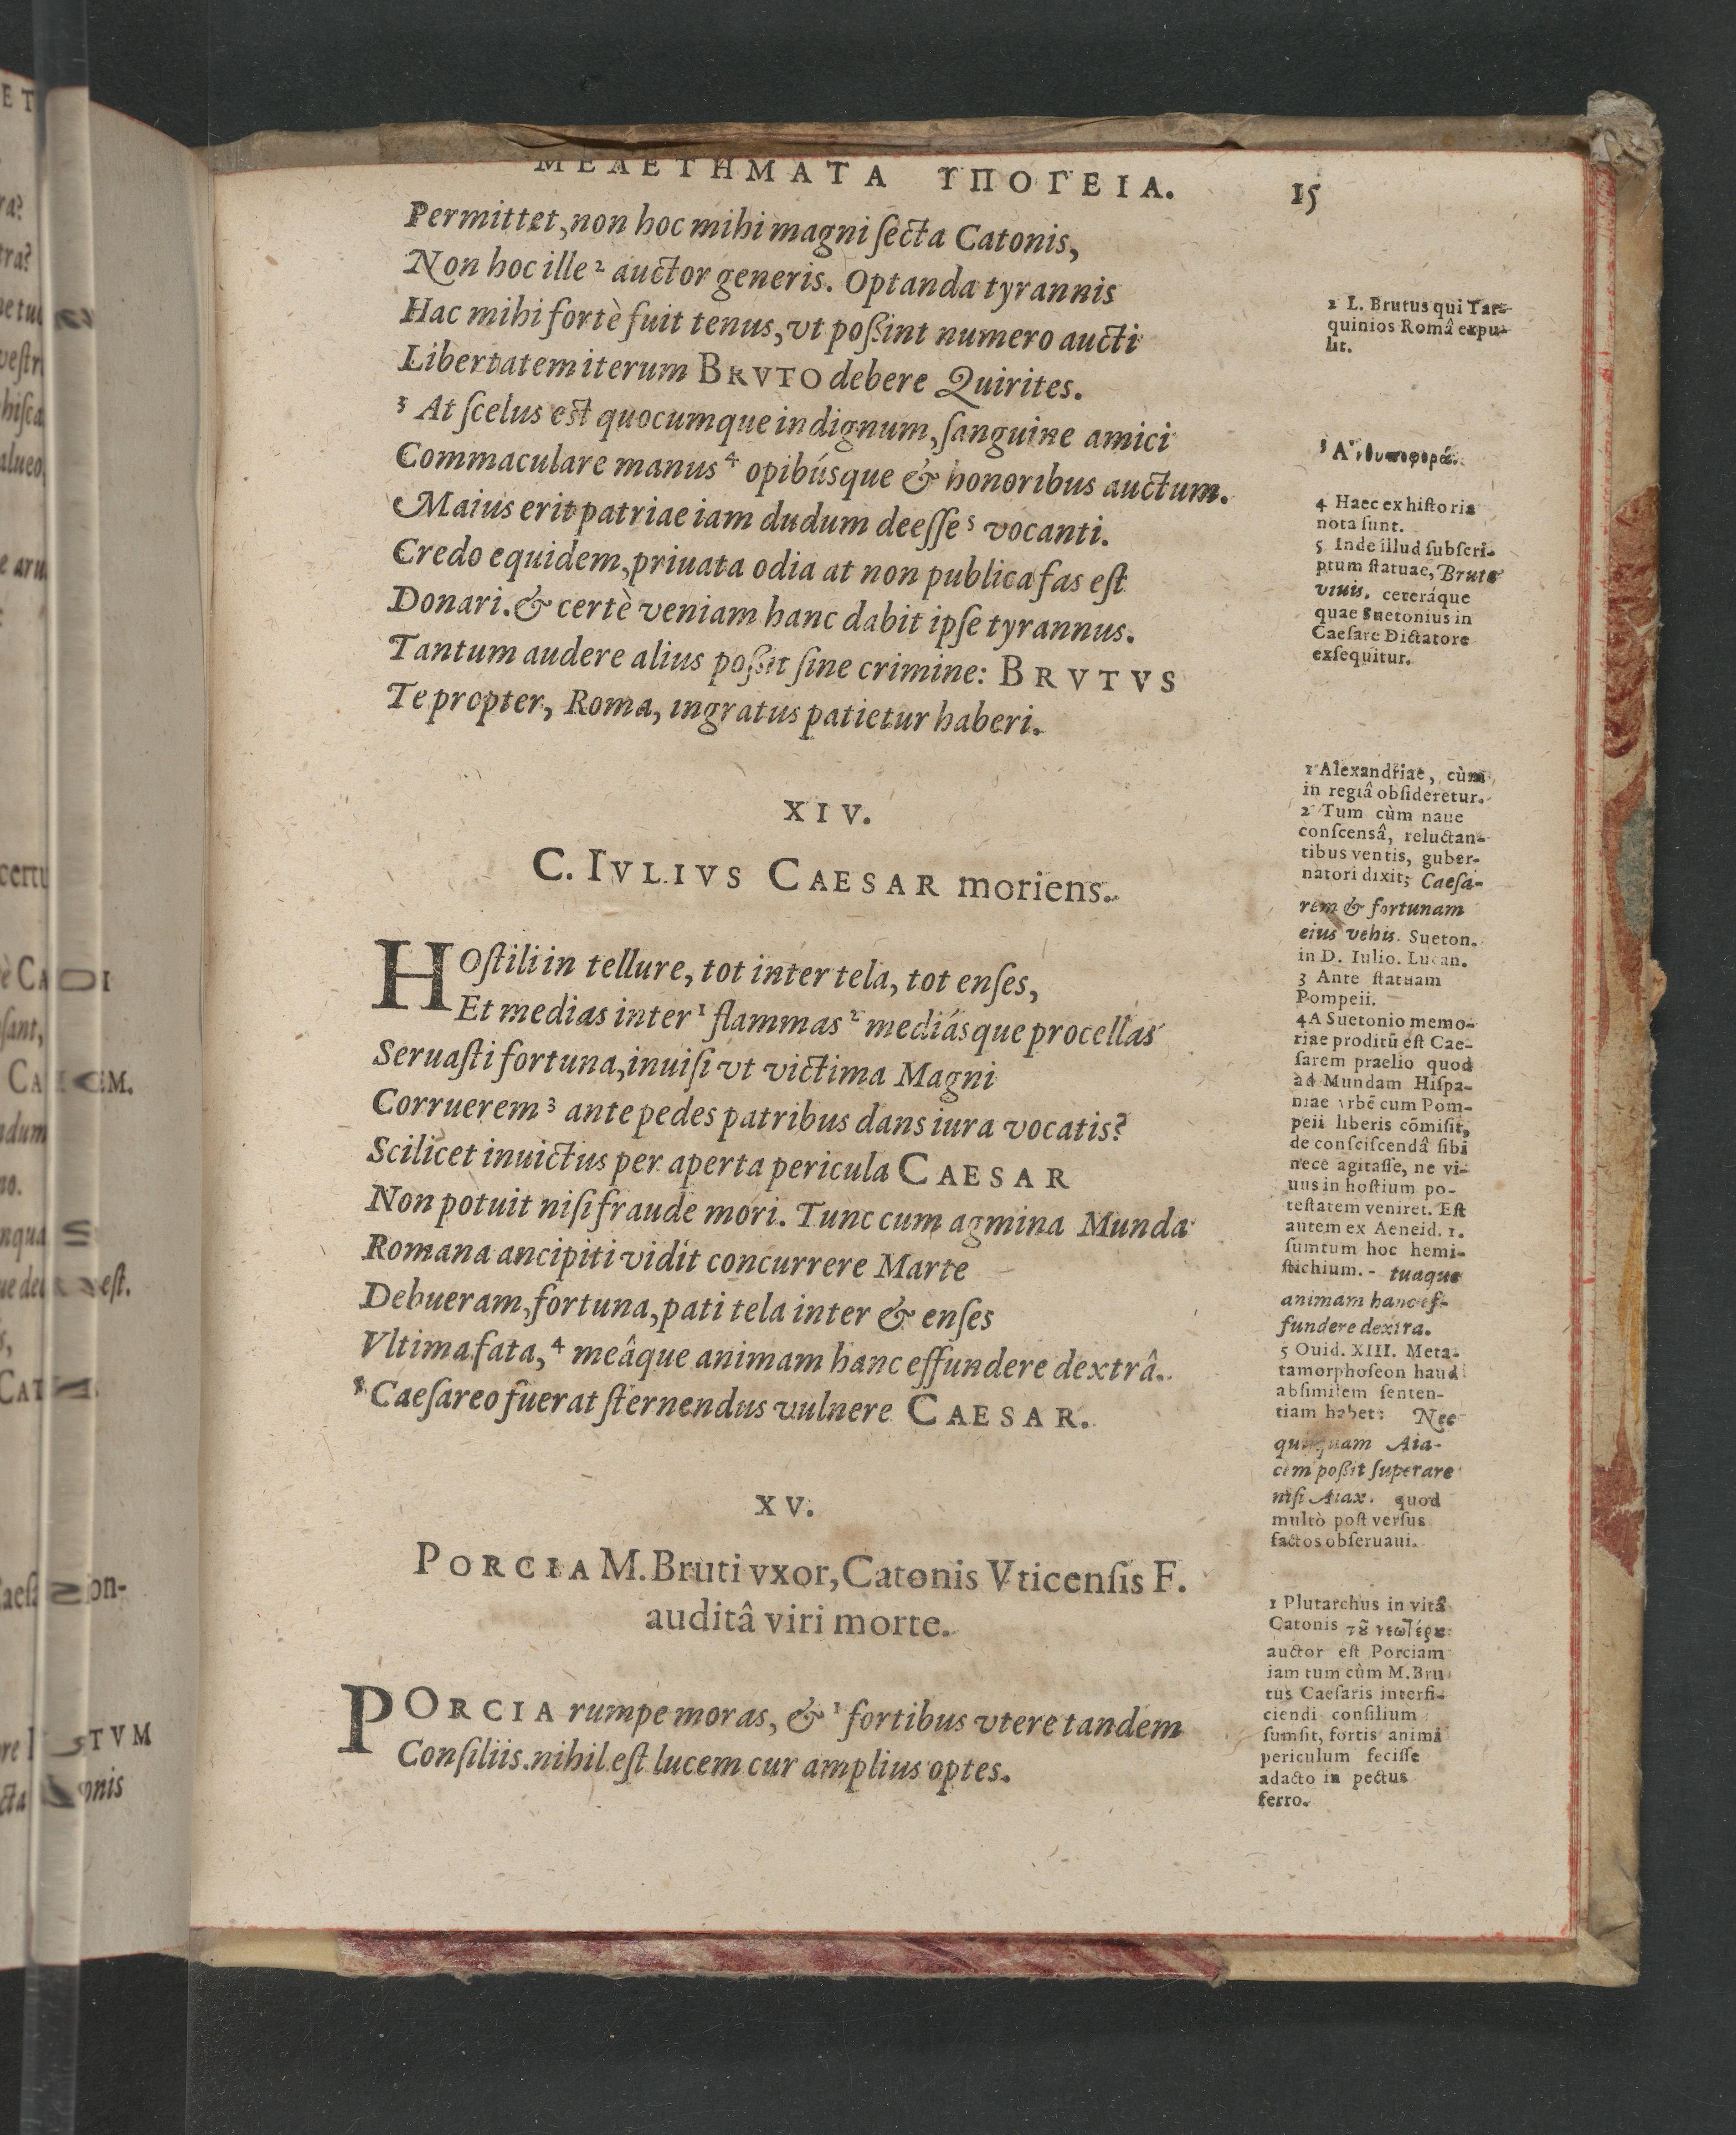 ΜΕΛΕΤΗΜΑΤΑ ΥΠΟΓΕΙΑ. 15
Permittet, non hoc mihi magni ſecta Catonis,
Non hoc ille ² auctor generis. Optanda tyrannis
Hac mihi fortè fuit tenus, vt poßint numero aucti
Libertatem iterum BRVTO debere Quirites.
³ At ſcelus est quocumque indignum, ſanguine amici
Commaculare manus ⁴ opibúsque & honoribus auctum.
Maius erit patriae iam dudum deeſſe ⁵ vocanti.
Credo equidem, priuata odia at non publica fas eſt
Donari. & certè veniam hanc dabit ipſe tyrannus.
Tantum audere alius poßit ſine crimine: BRVTVS
Te propter, Roma, ingratus patietur haberi.
2 L. Brutus qui Tar-
quinios Româ expu-
lit.
4 Haec ex hiſtoria
nota ſunt.
5 Inde illud ſubſcri-
ptum ſtatuae, Brute
viuis, ceteráque
quae Suetonius in
Caeſare Dictatore
exſequitur.
XIV.
C. IVLIVS CAESAR moriens.
HOſtili in tellure, tot inter tela, tot enſes,
Et medias inter ¹ flammas ² mediásque procellas
Seruaſti fortuna, inuiſi vt victima Magni
Corruerem ³ ante pedes patribus dans iura vocatis?
Scilicet inuictus per aperta pericula CAESAR
Non potuit niſi fraude mori. Tunc cum agmina Munda
Romana ancipiti vidit concurrere Marte
Debueram, fortuna, pati tela inter & enſes
Vltima fata, ⁴ meâque animam hanc effundere dextrâ.
⁵ Caeſareo fuerat ſternendus vulnere CAESAR.
1 Alexandriae, cùm
in regiâ obſideretur.
2 Tum cùm naue
conſcensâ, reluctan-
tibus ventis, guber-
natori dixit; Caeſa-
rem & fortunam
eius vehis. Sueton.
in D. Iulio. Lucan.
3 Ante ſtatuam
Pompeii.
4 A Suetonio memo-
riae proditũ eſt Cae-
ſarem praelio quod
ad Mundam Hiſpa-
niae vrbẽ cum Pom-
peii liberis cõmiſit,
de conſciſcendâ ſibi
nece agitaſſe, ne vi-
uus in hoſtium po-
teſtatem veniret. Eſt
autem ex Aeneid. 1.
ſumtum hoc hemi-
ſtichium. - tuaque
animam hanc ef-
fundere dextra.
5 Ouid. XIII. Meta-
tamorphoſeon haud
abſimilem ſenten-
tiam habet: Nec
quiſquam Aia-
cem poßit ſuperare
niſi Aiax. quod
multò poſt verſus
factos obſeruaui.
XV.
PORCIA M. Bruti vxor, Catonis Vticenſis F.
auditâ viri morte.
PORCIA rumpe moras, & ¹ fortibus vtere tandem
Conſiliis. nihil eſt lucem cur amplius optes.
1 Plutarchus in vitâ
Catonis
auctor eſt Porciam
iam tum cùm M. Bru
tus Caeſaris interfi-
ciendi conſilium
ſumſit, fortis animi
periculum feciſſe
adacto in pectus
ferro.